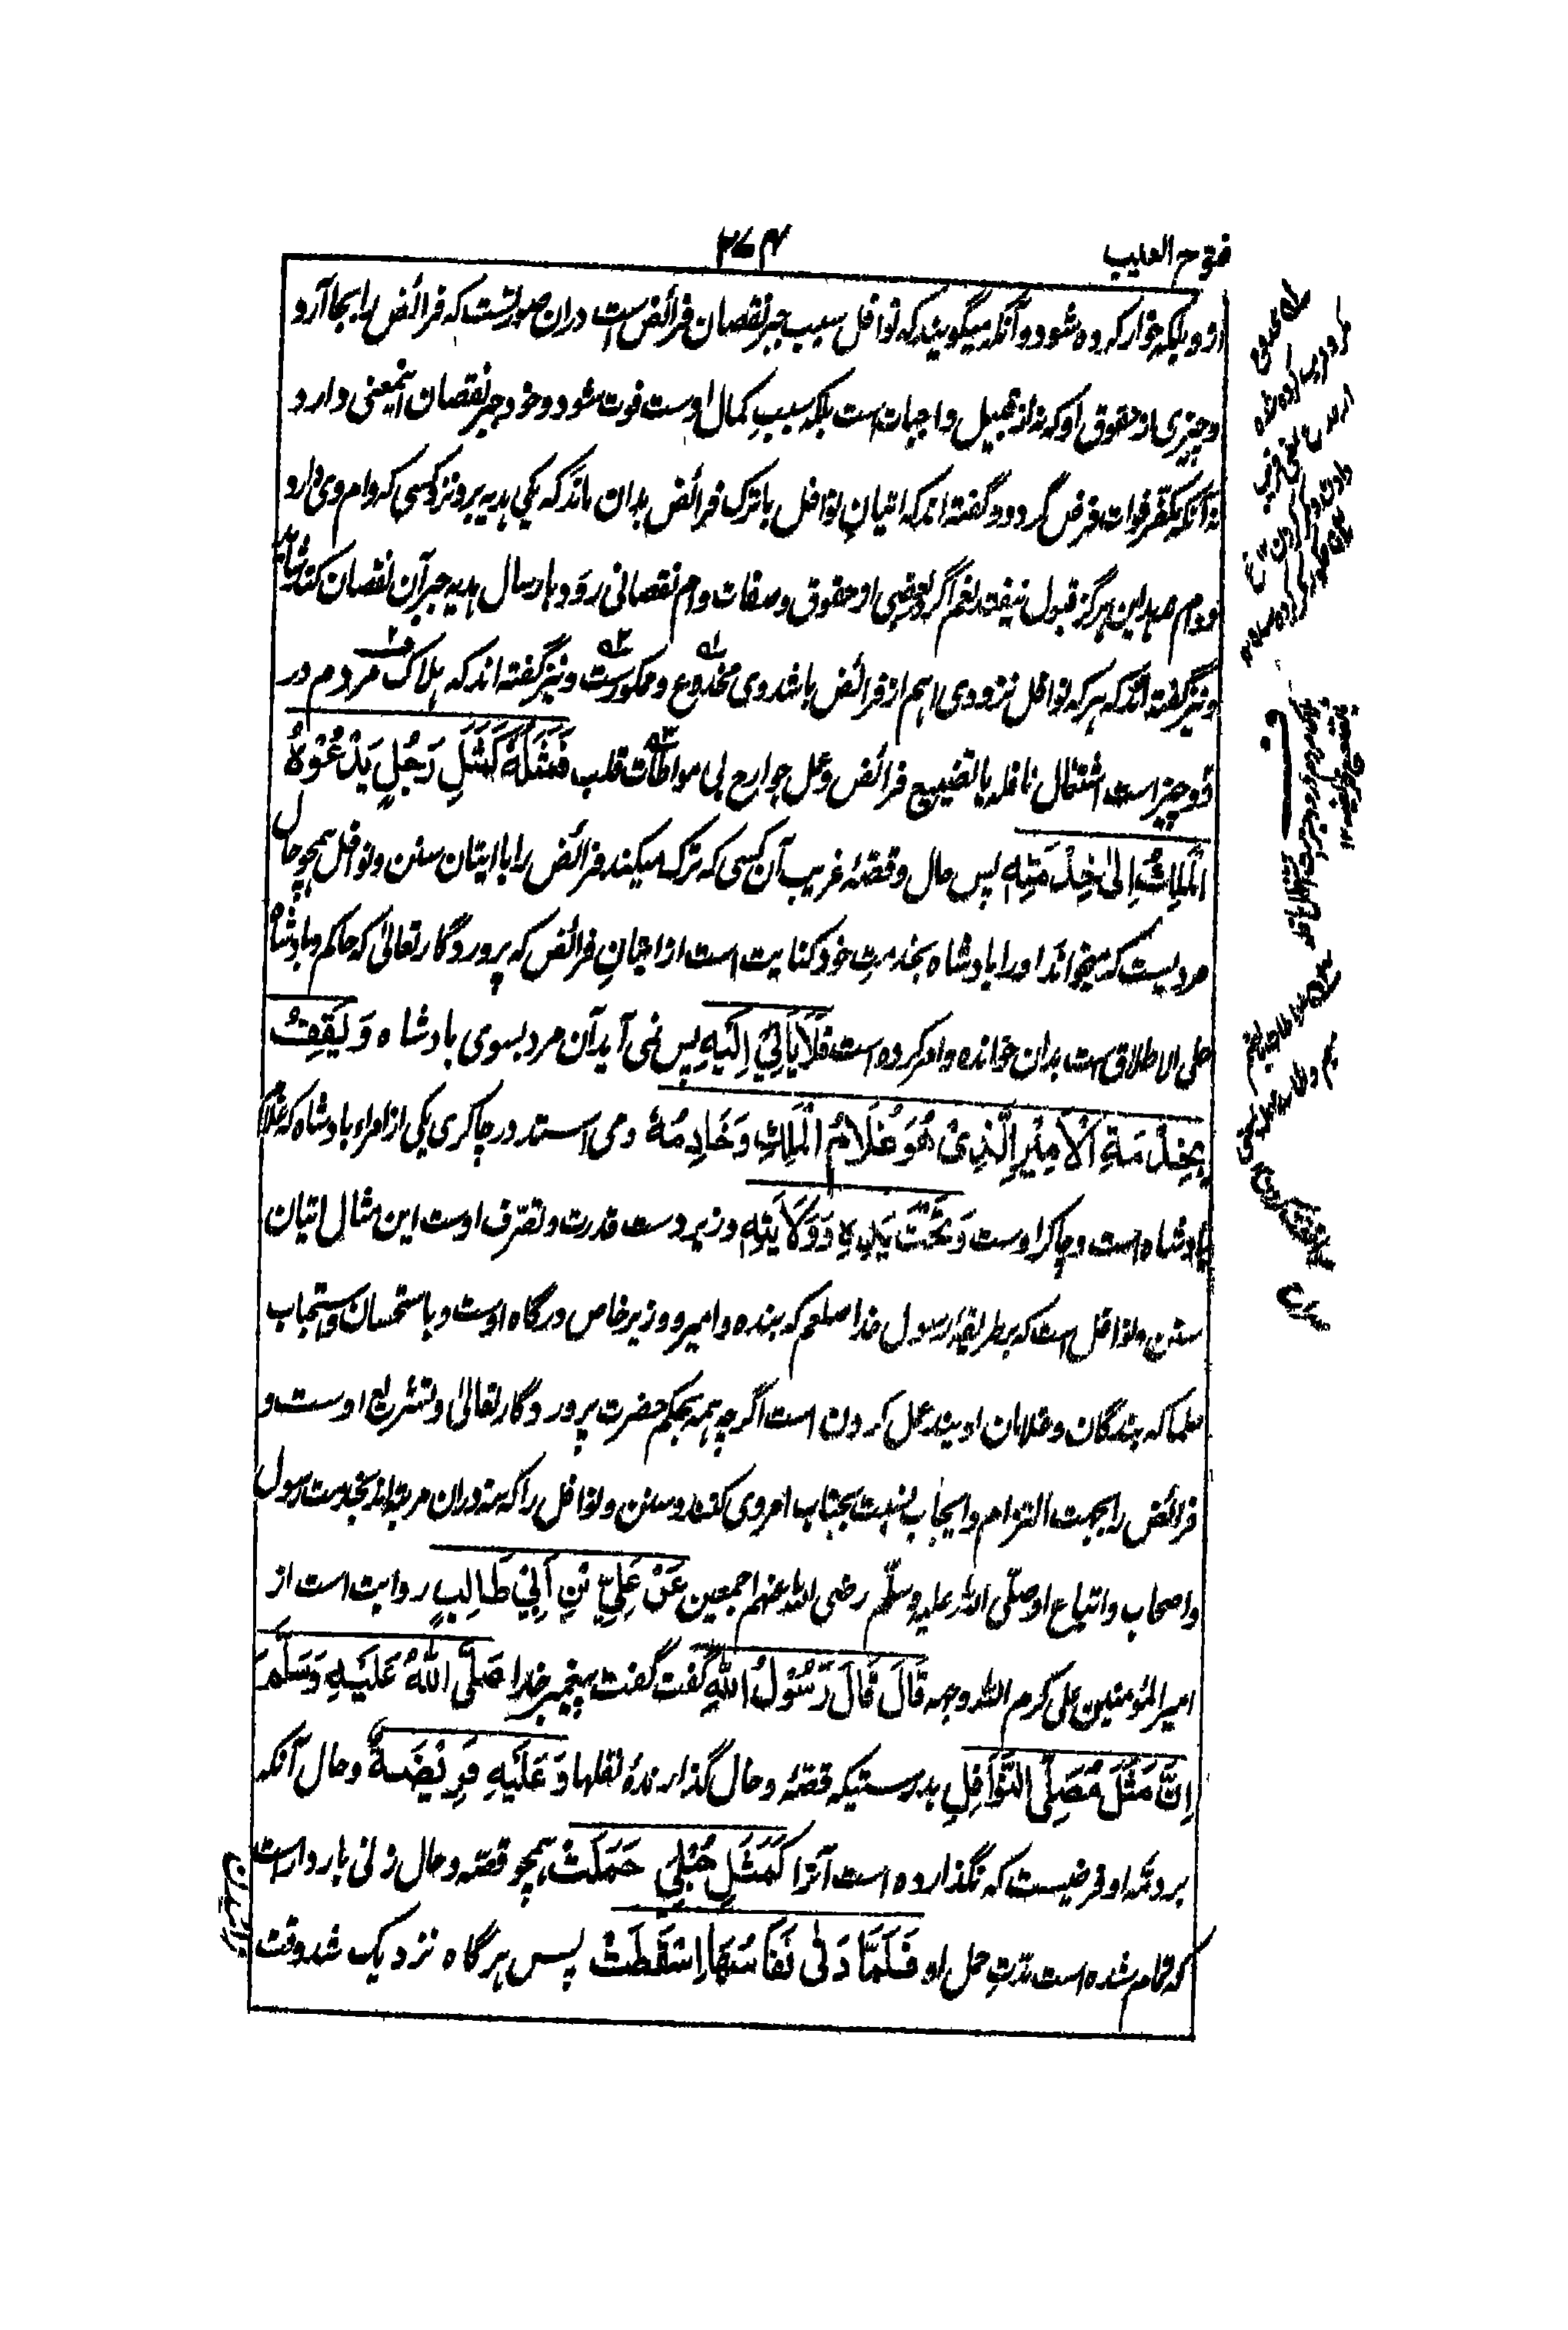 فتوح الغیب
۲۷۴
ازو بلکه خوار کرده شود و آنکه میگویند که نوافل سبب جبر نقصان فرائض است دران صورتست که فرائض را بجا آرد
و چیزی از حقوق او که نه از قبیل واجبات است بلکه سبب کمال اوست فوت شود و خود جبر نقصان اینمعنی دارد
نه آنکه مکفّر فوات فرض گردد و گفته اند که اتیانِ نوافل با ترک فرائض بدان ماند که یکی هدیه برد نزد کسی که وام وی دارد
و وام ندهد این هرگز قبول نیفتد نعم اگر در بعضی از حقوق و صفات وام نقصانی رود و بارسال هدیه جبر آن نقصان کند شاید
و نیز گفته اند که هر که نوافل نزد وی اهم از فرائض باشد وی مخدوع و ممکورست و نیز گفته اند که هلاک مردم در
دو چیز است اشتغال نافله با تضییع فرائض و عمل جوارح بی مواطأت قلب فَمَثَلُهٗ كَمَثَلِ رَجُلٍ يَدْعُوْهُ
الْمَلِكُ اِلیٰ خِدْمَتِهٖ پس حال و قصّهٔ غریب آن کسی که ترک میکند فرائض را با اتیان سنن و نوافل همچو حال
مردیست که میخواند او را بادشاه بخدمتِ خود کنایت است از اتیانِ فرائض که پروردگار تعالیٰ که حاکم و بادشاه
علی الاطلاق ست بدان خوانده و امر کرده است فَلَا يَاْتِيْ اِلَيْهِ پس نمی آید آن مرد بسوی بادشاه وَ يَقِفُ
بِخِدْمَةِ الْاَمِيْرِ الَّذِیْ هُوَ غُلَامُ الْمَلِكِ وَ خَادِمُهٗ و می استد در چاکری یکی از امراء بادشاه که غلام
بادشاه است و چاکر اوست وَ تَحْتَ يَدِهٖ وَ وَلَايَتِهٖ و زیر دست قدرت و تصرّف اوست این مثال اتیان
سنن و نوافل است که بطریقهٔ رسول خدا صلعم که بنده و امیر و وزیر خاص درگاه اوست و باستحسان و استحباب
علما که بندگان و غلامان اویند عمل کردن است اگر چه همه بحکم حضرت پروردگار تعالیٰ و تشریع اوست و
فرائض را بجهت التزام و ایجاب نسبت بجناب امر وی کنند و سنن و نوافل را که نه دران مرتبه اند بخدمت رسول
و اصحاب و اتباع او صلّی الله علیه وسلّم رضی الله عنهم اجمعین عَنْ عَلِيِّ بْنِ اَبِيْ طَالِبٍ روایت است از
امیر المؤمنین علی کرم الله وجهه قَالَ قَالَ رَسُوْلُ اللهِ گفت گفت پیغمبر خدا صَلَّی اللهُ عَلَيْهِ وَسَلَّمَ
اِنَّ مَثَلَ مُصَلِّی النَّوَافِلِ بدرستیکه قصّه و حال گذارندهٔ نفلها وَ عَلَيْهِ فَرِيْضَةٌ و حال آنکه
بر ذمّه او فرضیست که نگذارده است آنرا كَمَثَلِ حُبْلیٰ حَمَلَتْ همچو قصّه و حال زنی باردار است
که تمام شده است مدّتِ حمل او فَلَمَّا دَنٰی نَفَاسُهَا اَسْقَطَتْ پس هرگاه نزدیک شد وقت